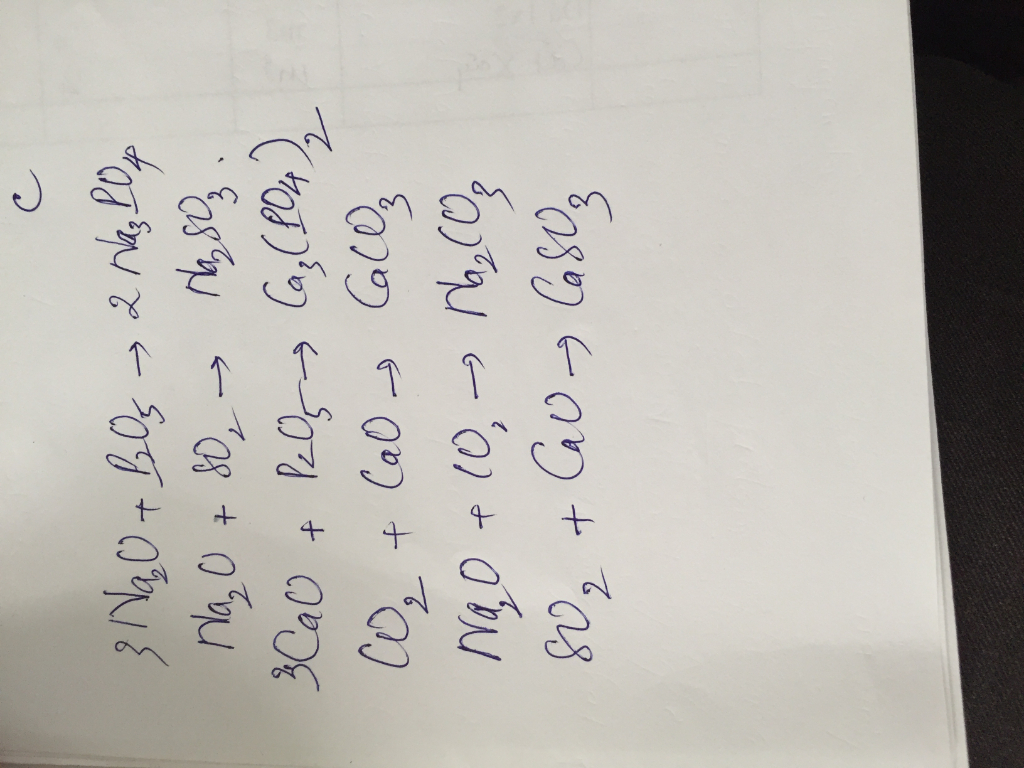 C
3Na₂O + P₂O₅ → 2Na₃PO₄
Na₂O + SO₂ → Na₂SO₃.
3CaO + P₂O₅ → Ca₃(PO₄)₂
CO₂ + CaO → CaCO₃
Na₂O + CO₂ → Na₂CO₃
SO₂ + CaO → CaSO₃